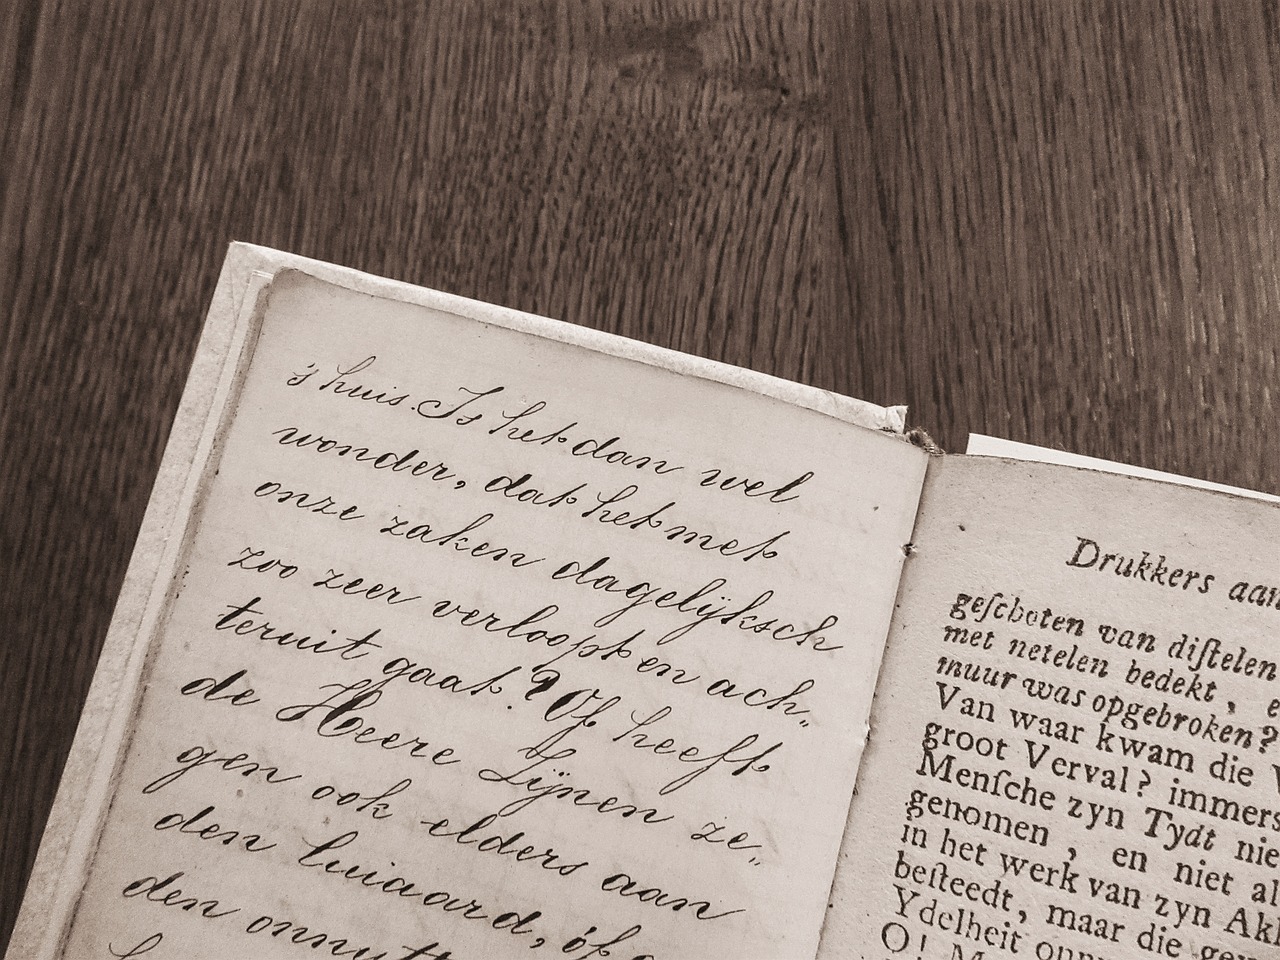 's huis. Is het dan wel
wonder, dat het met
onze zaken dagelijksch
zoo zeer verloopt en ach„
teruit gaat? Of heeft
de Heere Zijnen ze„
gen ook elders aan
den luiaard, óf
den onnutt
Drukkers aan
geſchoten van diſtelen
met netelen bedekt, e
muur was opgebroken?
Van waar kwam die V
groot Verval? immers
Menſche zyn Tydt nie
genomen, en niet al
in het werk van zyn Akk
beſteedt, maar die gew
Ydelheit onnu
O! M